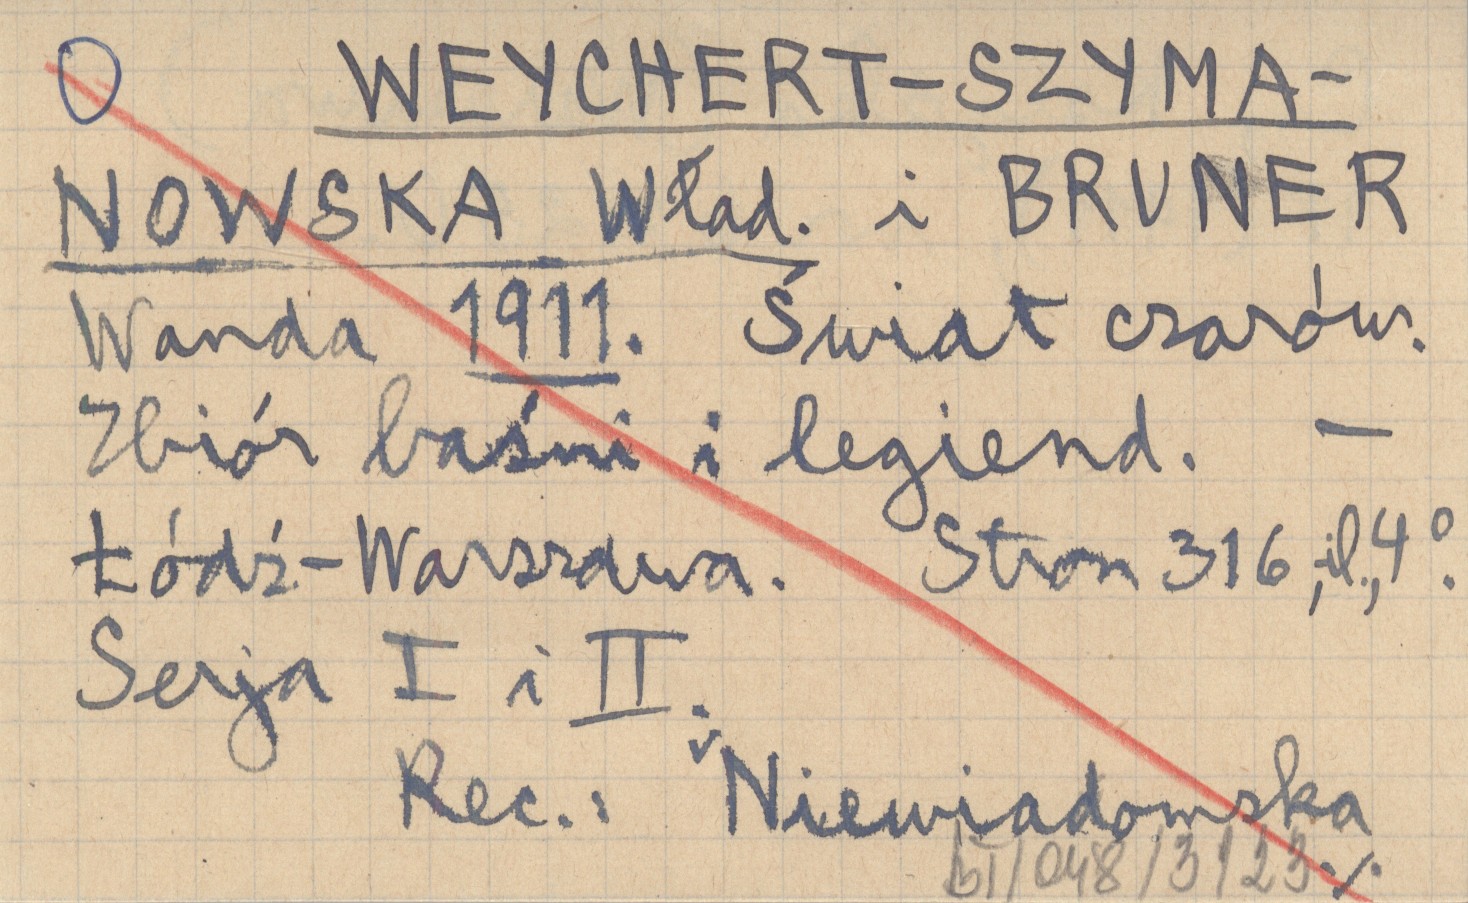 O WEYCHERT-SZYMA-
NOWSKA Wład. i BRUNER
Wanda 1911. Świat czarów.
Zbiór baśni i legiend. —
Łódź-Warszawa. Stron 316, il., 4°.
Serja I i II.
Rec.: Niewiadomska
BI/048/3/23 ./.